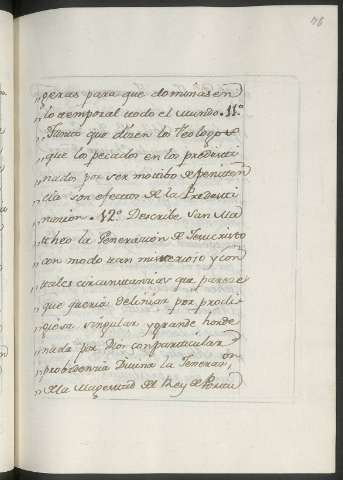 76
„geras para que dominasen
„lo temporal todo el Mundo. 11.º
„Junto que dizen los Teologos
„que los pecados en los predesti
„nados por ser motibo de peniten
„cia son efectos de la Predesti
„nacion. 12.º Describe San Ma
„theo la Generacion de Jesucristo
„con modo tan misterioso y con
„tales circunstancias que parece
„que queria deliniar por prodi
„giosa singular y grande
„nada por Dios con particular
„probidencia Divina la Generaon
„de la Magestad del Rey de Portu